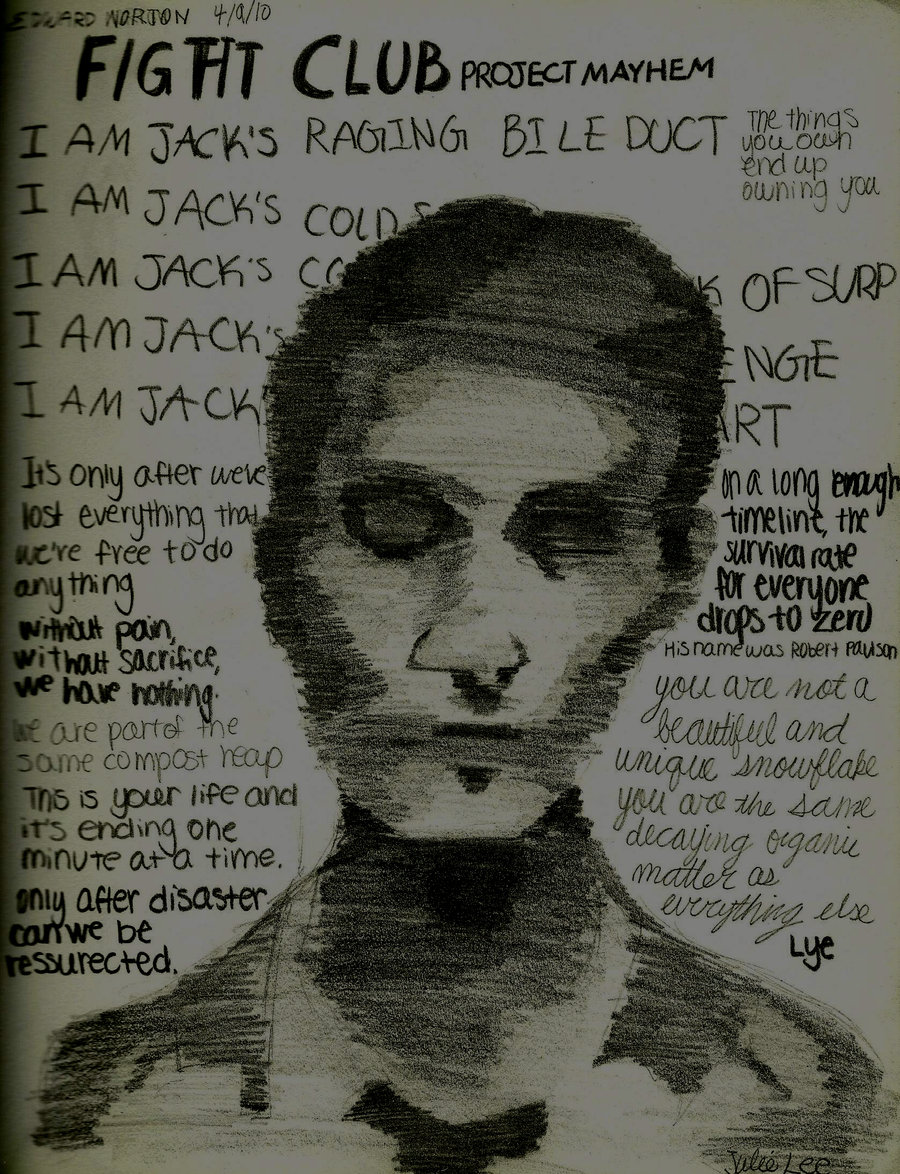 EDWARD NORTON 4/9/10
FIGHT CLUB PROJECT MAYHEM
I AM JACK'S RAGING BILE DUCT
I AM JACK'S COLD S
I AM JACK'S CO K OF SURP
I AM JACK'S ENGE
I AM JACK ART
The things
you own
end up
owning you
It's only after we've
lost everything that
we're free to do
anything
without pain,
without sacrifice,
we have nothing.
we are part of the
same compost heap
This is your life and
it's ending one
minute at a time.
only after disaster
can we be
ressurected.
on a long enough
timeline, the
survival rate
for everyone
drops to zero
His name was Robert Paulson
you are not a
beautiful and
unique snowflake
you are the same
decaying organic
matter as
everything else
Lye
Julie Lee